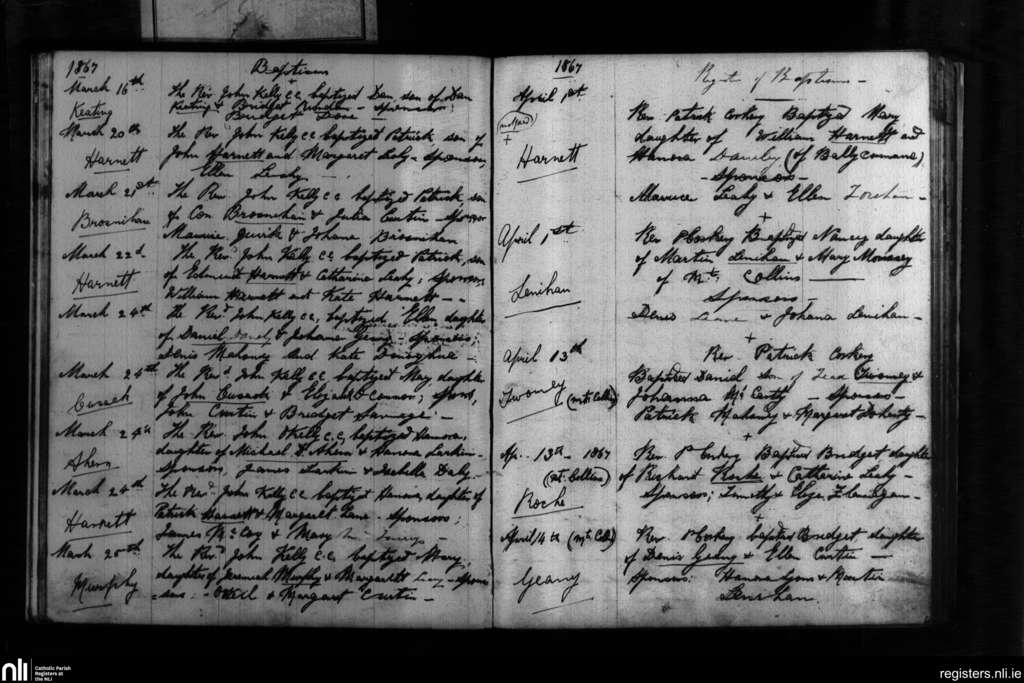 1867
Baptisms
March 16th
The Rev John Kelly CC baptized Dan son of Dan
Keating
Keating & Bridget - Sponsors:
Bridget
March 20th
The Rev John Kelly CC baptized Patrick, son of
Harnett
John Harnett and Margaret Leahy - Sponsors,
Ellen Leahy
March 21st
The Rev John Kelly CC baptized Patrick, son
Brosnihan
of Con Brosnihan & Julia Curtin - Sponsors
Maurice & Johana Brosnihan
March 22d
The Revd John Kelly CC baptized Patrick, son
Harnett
of Edmund Harnett & Catharine Leahy; Sponsors,
William Harnett and Kate Harnett - -
March 24th
The Revd John Kelly, CC, baptized Ellen daughter
of Daniel & Johana Sponsors;
Denis Mahony and Kate Donoghue -
March 24th
The Revd John Kelly CC baptized Mary, daughter
Cusack
of John Cusack & Elizabeth O'Connor; Spons,
John Curtin & Bridget Savage -
March 24th
The Rev. John Kelly C.C, baptized Hanora,
Ahern
daughter of Michael D. Ahern & Hanora Larkin -
Sponsors, James Larkin & Isabella Daly -
March 24th
The Revd John Kelly CC baptized Hanora, daughter of
Harnett
Patrick Harnett & Margaret Lane - Sponsors;
James McCoy & Mary
March 25th
The Revd John Kelly C.C. baptized Mary,
Murphy
daughter of Jeremiah Murphy & Margarett - Spon
sors - & Margaret Curtin -
1867
Register of Baptisms -
April 1st
Rev Patrick Corkery Baptized Mary
daughter of William Harnett and
Harnett
Hanora (of Ballycommane)
- Sponsors -
Maurice Leahy & Ellen
April 1st
Rev P Corkery Baptized Nancy daughter
of Martin Lenihan & Mary Morrissey
Lenihan
of Mt. Collins
Sponsors -
Denis & Johana Lenihan -
April 13th
Rev. Patrick Corkery
Baptized Daniel son of Twomey &
Twomey (Mt Collins)
Johanna McCarthy - Sponsors -
Patrick Mahony & Margaret Doherty -
Ap. 13th - 1867
Rev. P Corkery Baptized Bridget daughter
(Mt. Collins)
of Richard Roche & Catharine Leahy -
Roche
Sponsors; Timothy & Eliza
April 14th (Mt Collins)
Rev. P Corkery baptized Bridget daughter
of Denis Geany & Ellen Curtin -
Geany
Sponsors: Hanora Lyons & Martin
Lenihan.
nli
Catholic Parish
Registers at
the NLI
registers.nli.ie